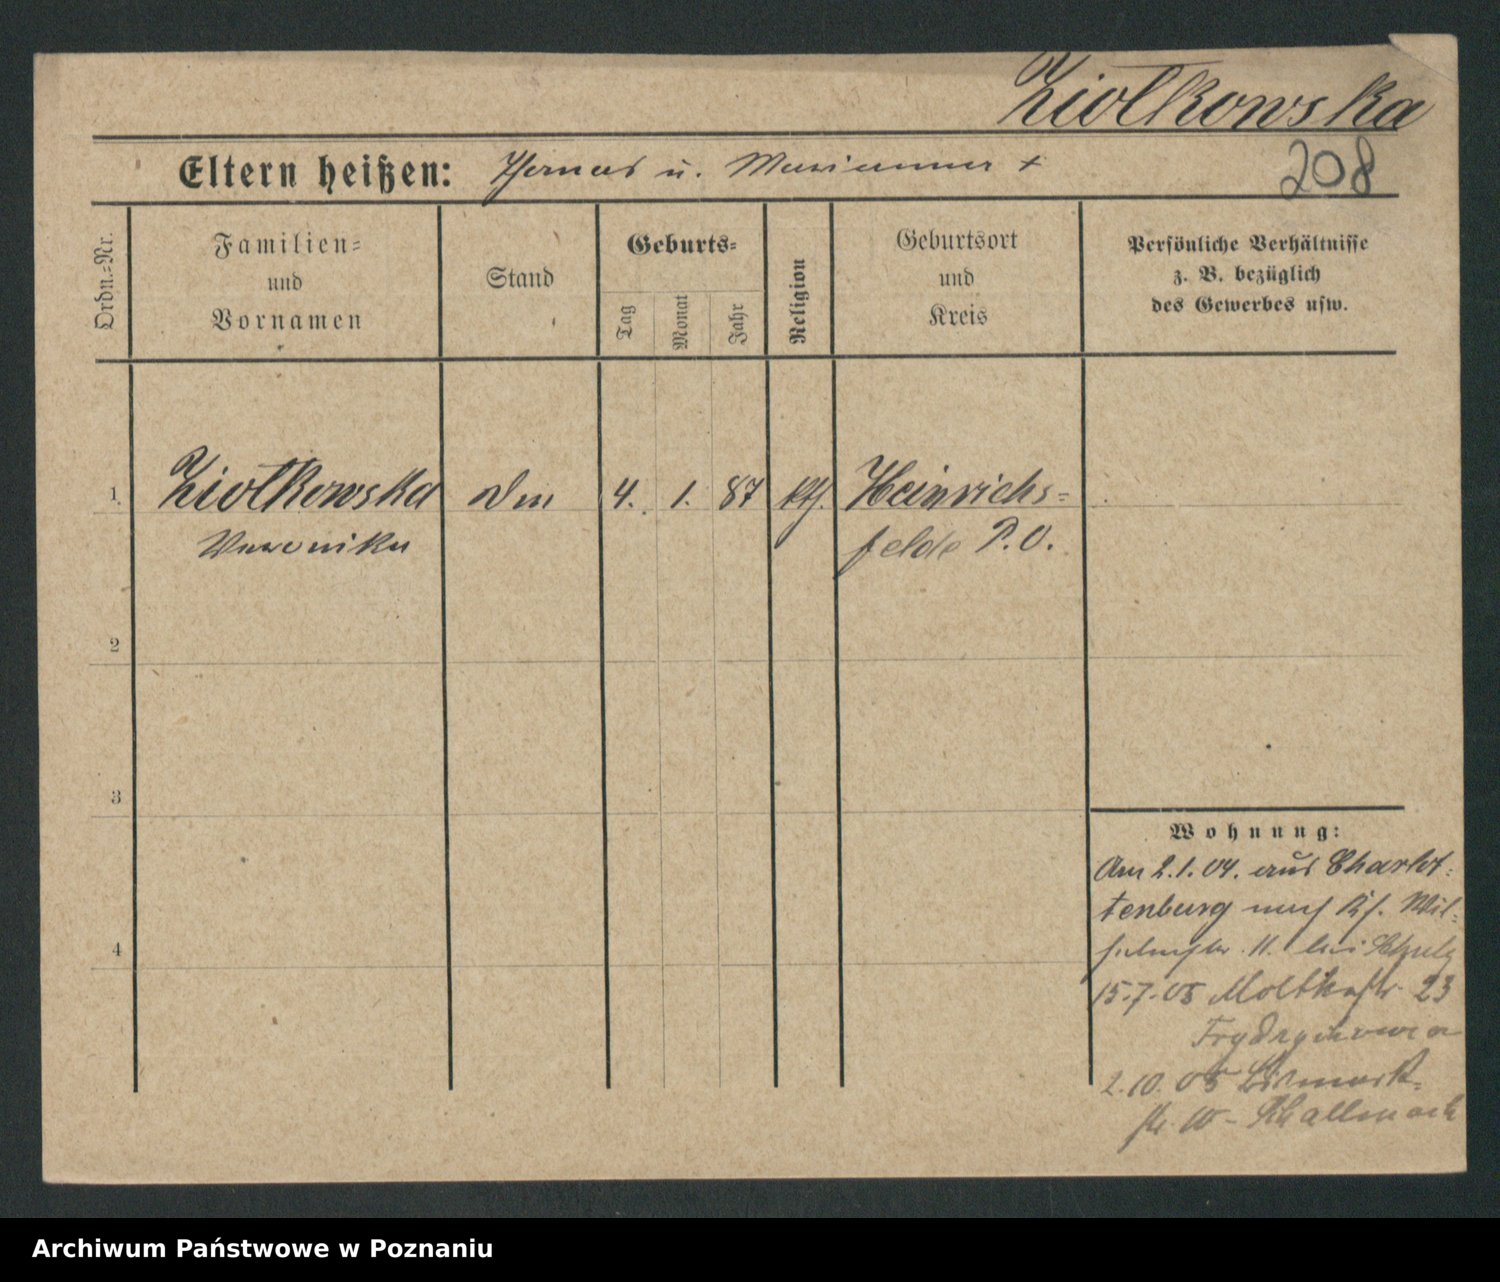 Ziolkowska
Eltern heißen: Thomas u. Marianna +
208
Ordn.-Nr.
Familien-
und
Vornamen
Stand
Geburts-
Tag
Monat
Jahr
Religion
Geburtsort
und
Kreis
Persönliche Verhältnisse
z. B. bezüglich
des Gewerbes usw.
1. Ziolkowska 4. 1. 87 kth. Heinrichs-
Veronika felde P.O.
2
3
4
Wohnung:
Am 2.1.04. aus Charlot-
tenburg nach Wil-
helmstr. 11. bei
15.7.05 Moltkestr. 23
2.10.05 Bismark-
str. 10 -
Archiwum Państwowe w Poznaniu